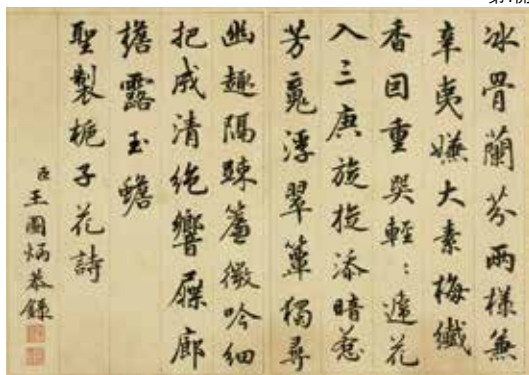 冰骨蘭芬兩樣兼
辛夷嫌大素梅纖
香因重與輕:遞花
入三庚旋旋添暗惹
芳䰟浮翠簟獨尋
幽趣隔疎簾微吟細
把咸清絕響屧廊
簷露玉蟾
聖製梔子花詩
臣王圖炳恭錄